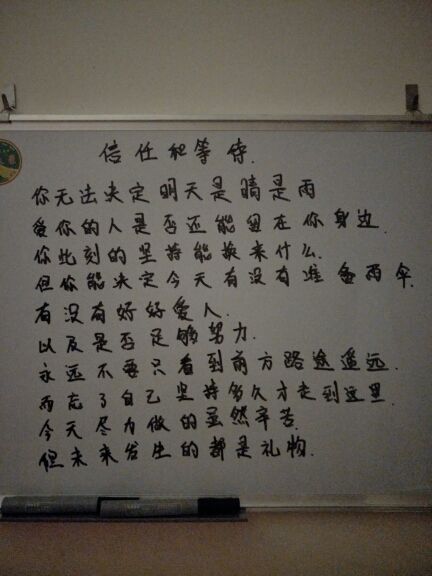 信任和等待.
你无法决定明天是晴是雨
爱你的人是否还能留在你身边.
你此刻的坚持能换来什么.
但你能决定今天有没有准备雨伞.
有没有好好爱人.
以及是否足够努力.
永远不要只看到前方路途遥远.
而忘了自己坚持多久才走到这里.
今天尽力做的虽然辛苦.
但未来发生的都是礼物.